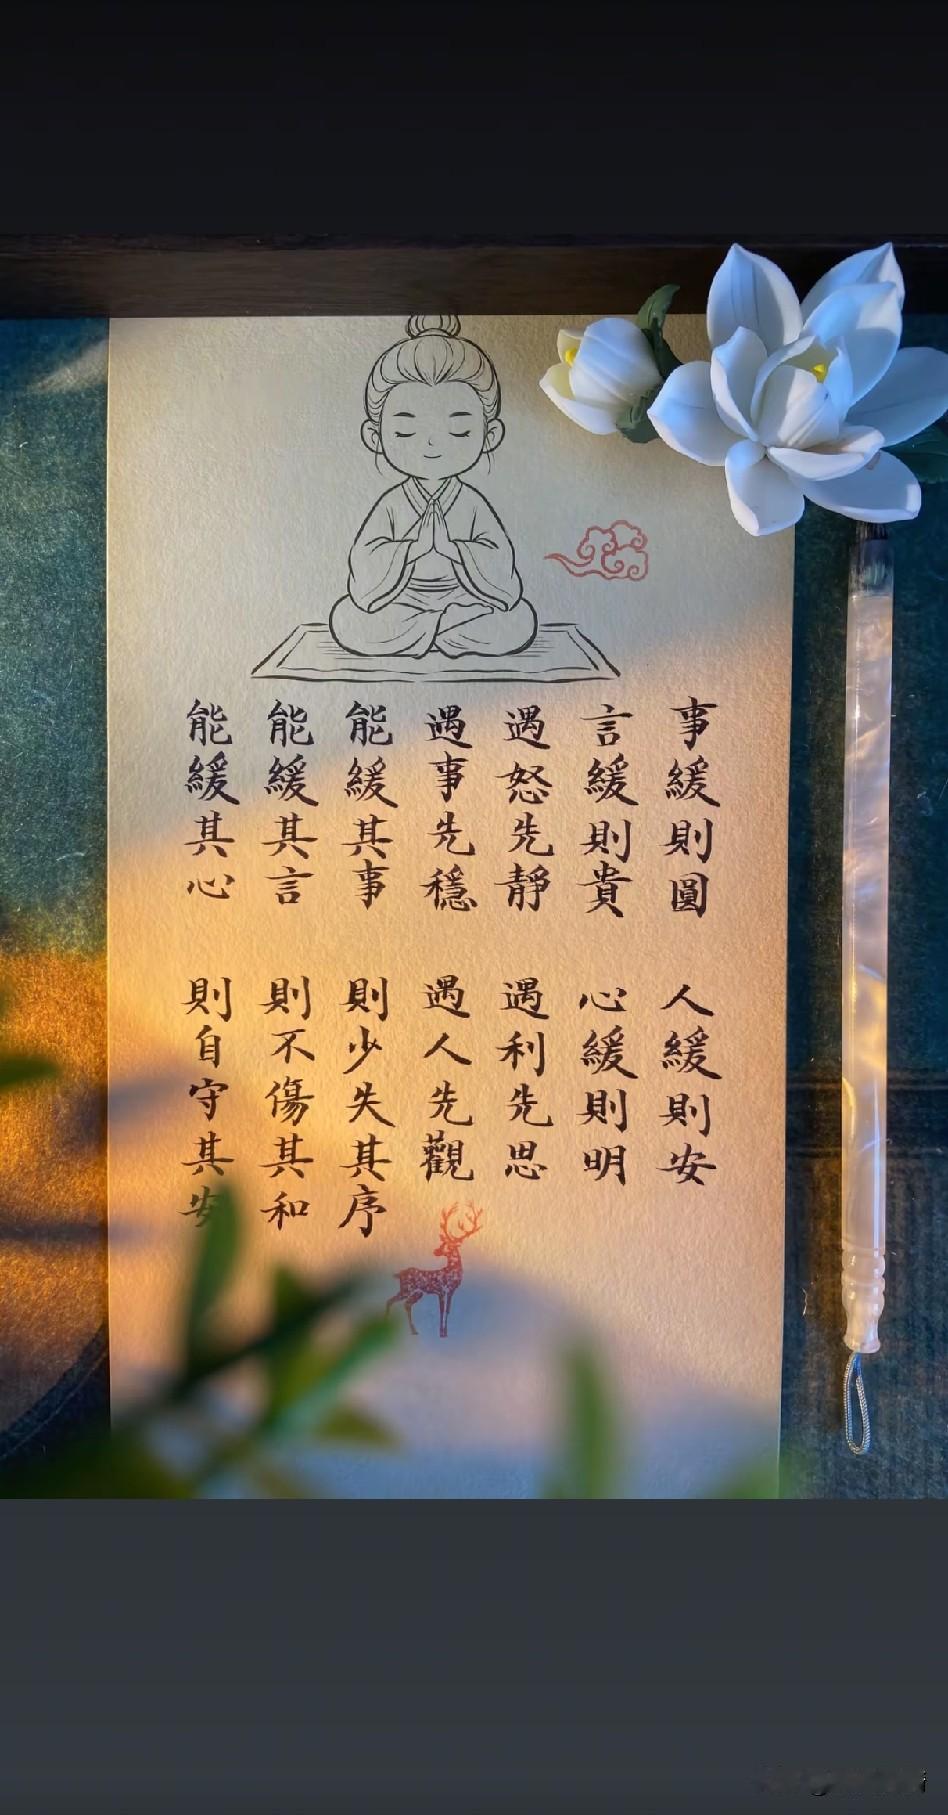 事緩則圓 人緩則安
言緩則貴 心緩則明
遇怒先靜 遇利先思
遇事先穩 遇人先觀
能緩其事 則少失其序
能緩其言 則不傷其和
能緩其心 則自守其安